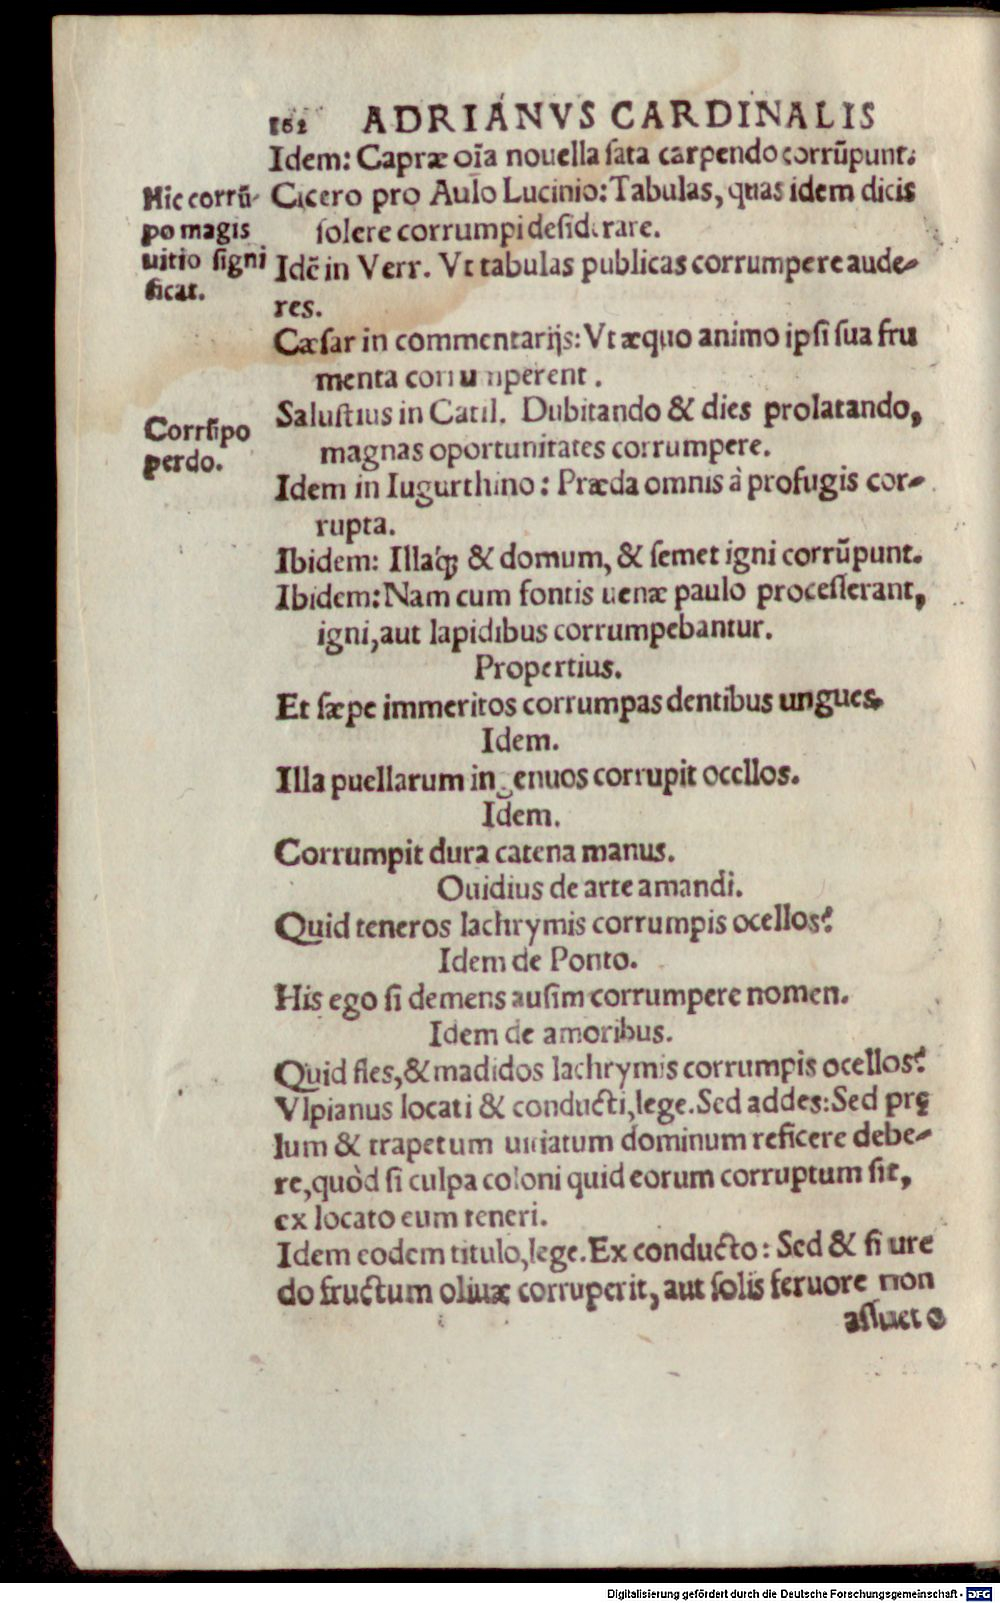 162 ADRIANVS CARDINALIS
Idem: Capræ oĩa nouella ſata carpendo corrũpunt.
Hic corrũ-
po magis
uitio ſigni
ficat.
Cicero pro Aulo Lucinio: Tabulas, quas idem dicis
ſolere corrumpi deſiderare.
Idẽ in Verr. Vt tabulas publicas corrumpere aude-
res.
Cæſar in commentarijs: Vt æquo animo ipſi ſua fru
menta corrumperent.
Corrũpo
perdo.
Saluſtius in Catil. Dubitando & dies prolatando,
magnas oportunitates corrumpere.
Idem in Iugurthino: Præda omnis à profugis cor-
rupta.
Ibidem: Illáq; & domum, & ſemet igni corrũpunt.
Ibidem: Nam cum fontis uenæ paulo proceſſerant,
igni, aut lapidibus corrumpebantur.
Propertius.
Et ſæpe immeritos corrumpas dentibus ungues.
Idem.
Illa puellarum ingenuos corrupit ocellos.
Idem.
Corrumpit dura catena manus.
Ouidius de arte amandi.
Quid teneros lachrymis corrumpis ocellos?
Idem de Ponto.
His ego ſi demens auſim corrumpere nomen.
Idem de amoribus.
Quid fles, & madidos lachrymis corrumpis ocellos?
Vlpianus locati & conducti, lege. Sed addes: Sed prę
lum & trapetum uitiatum dominum reficere debe-
re, quòd ſi culpa coloni quid eorum corruptum ſit,
ex locato eum teneri.
Idem eodem titulo, lege. Ex conducto: Sed & ſi ure
do fructum oliuæ corruperit, aut ſolis feruore non
aſſueto
Digitalisierung gefördert durch die Deutsche Forschungsgemeinschaft - DFG